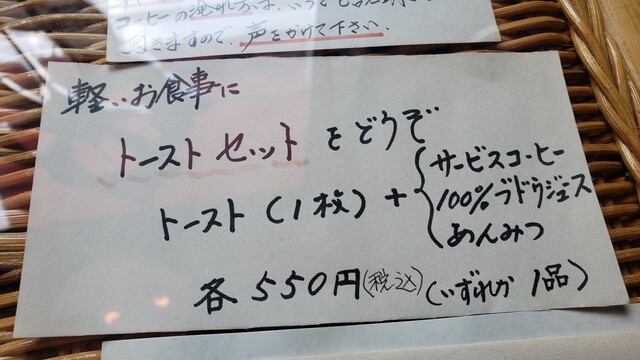 コーヒーの
ますので、声をかけて下さい。
軽いお食事に
トーストセットをどうぞ
トースト(1枚)+
サービスコーヒー
100%ブドウジュース
あんみつ
各550円(税込)(いずれか1品)